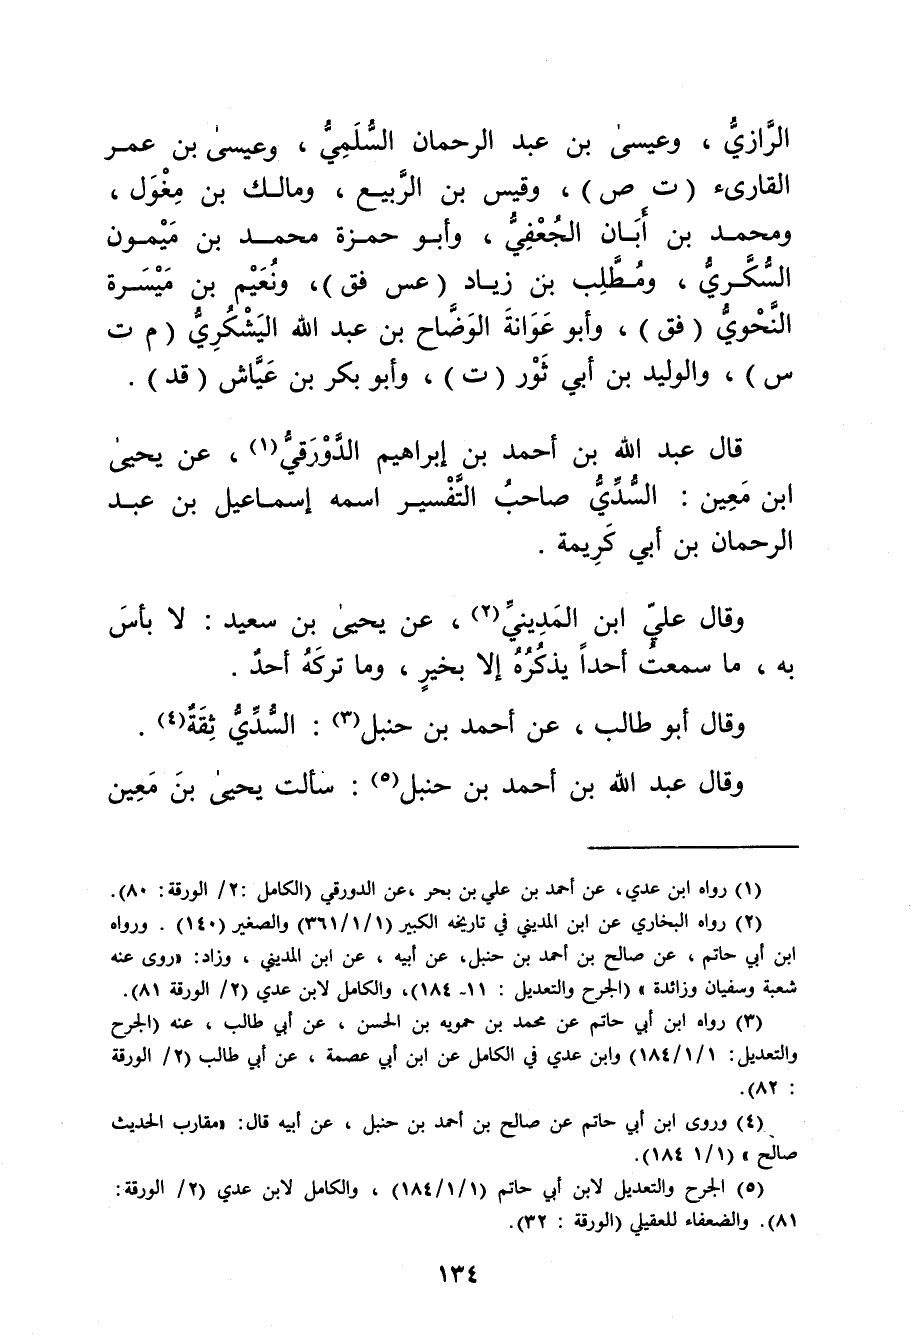 الرَّازيُّ ، وعيسىٰ بن عبد الرحمان السُّلَمِيُّ ، وعيسىٰ بن عمر
القارىء ( ت ص ) ، وقيس بن الرَّبيع ، ومالك بن مِغْوَل ،
ومحمد بن أَبَان الجُعْفِيُّ ، وأبو حمزة محمد بن مَيْمون
السُّكَّريُّ ، ومُطَّلِب بن زياد ( عس فق )، ونُعَيْم بن مَيْسَرة
النَّحْويُّ ( فق ) ، وأبو عَوَانةَ الوَضَّاح بن عبد الله اليَشْكُرِيُّ ( م ت
س ) ، والوليد بن أبي ثَوْر ( ت ) ، وأبو بكر بن عَيَّاش ( قد ) .
قال عبد الله بن أحمد بن إبراهيم الدَّوْرَقيُّ(١) ، عن يحيىٰ
ابن مَعِين : السُّدِّيُّ صاحبُ التَّفْسير اسمه إسماعيل بن عبد
الرحمان بن أبي كَرِيمة .
وقال عليّ ابن المَدِينيِّ(٢) ، عن يحيىٰ بن سعيد : لا بأسَ
به ، ما سمعتُ أحداً يذكُرُهُ إلا بخيرٍ ، وما تركَهُ أحدٌ .
وقال أبو طالب ، عن أحمد بن حنبل(٣) : السُّدِّيُّ ثِقَةٌ(٤) .
وقال عبد الله بن أحمد بن حنبل(٥) : سألت يحيىٰ بنَ مَعِين
(١) رواه ابن عدي، عن أحمد بن علي بن بحر ،عن الدورقي (الكامل :٢/ الورقة: ٨٠).
(٢) رواه البخاري عن ابن المديني في تاريخه الكبير (٣٦١/١/١) والصغير (١٤٠) . ورواه
ابن أبي حاتم ، عن صالح بن أحمد بن حنبل، عن أبيه ، عن ابن المديني ، وزاد: «روى عنه
شعبة وسفيان وزائدة » (الجرح والتعديل : ١١- ١٨٤)، والكامل لابن عدي (٢/ الورقة ٨١).
(٣) رواه ابن أبي حاتم عن محمد بن حمويه بن الحسن ، عن أبي طالب ، عنه (الجرح
والتعديل: ١٨٤/١/١) وابن عدي في الكامل عن ابن أبي عصمة ، عن أبي طالب (٢/ الورقة
: ٨٢).
(٤) وروى ابن أبي حاتم عن صالح بن أحمد بن حنبل ، عن أبيه قال: «مقارب الحديث
صالح » (١/١ ١٨٤).
(٥) الجرح والتعديل لابن أبي حاتم (١٨٤/١/١) ، والكامل لابن عدي (٢/ الورقة:
٨١). والضعفاء للعقيلي (الورقة : ٣٢).
١٣٤